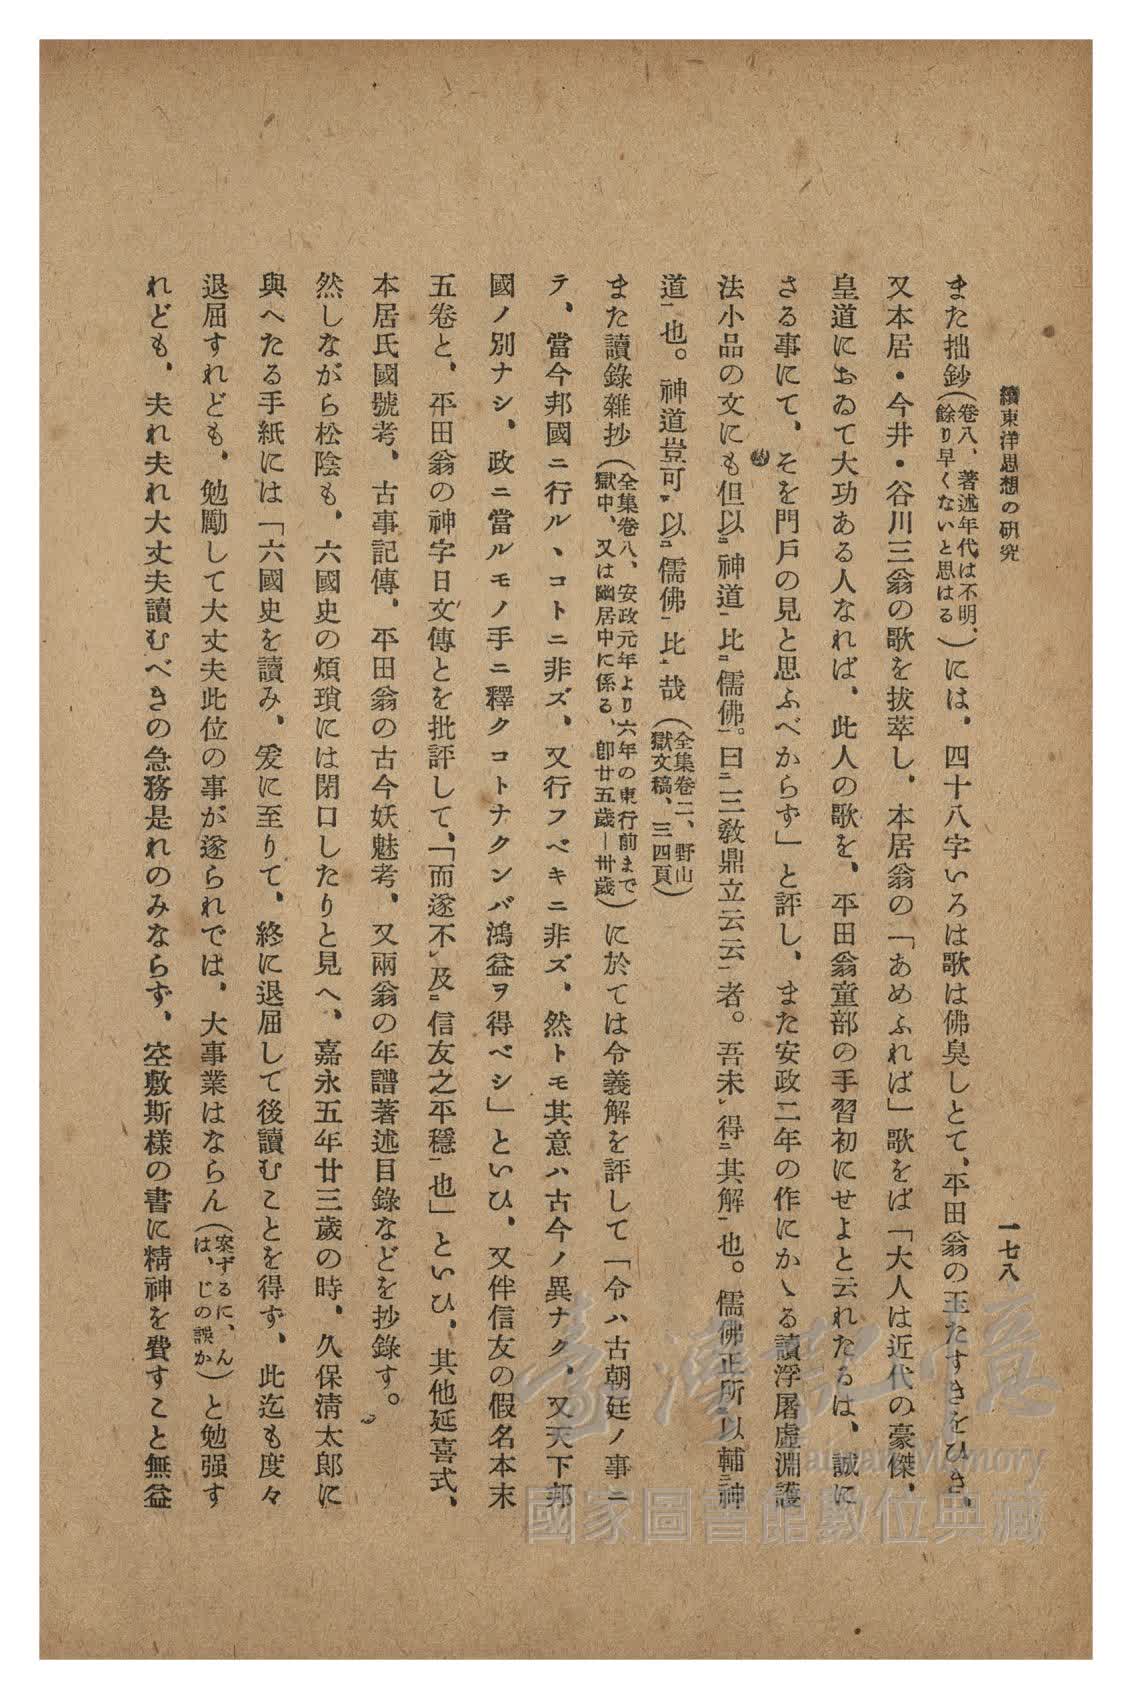 續東洋思想の硏究
一七八
また拙鈔(卷八、著述年代は不明、餘り早くないと思はる)には、四十八字いろは歌は佛臭しとて、平田翁の玉たすきをひき、
又本居・今井・谷川三翁の歌を拔萃し、本居翁の「あめふれば」歌をば「大人は近代の豪傑、
皇道におゐて大功ある人なれば、此人の歌を、平田翁童部の手習初にせよと云れたるは、誠に
さる事にて、そを門戶の見と思ふべからず」と評し、また安政二年の作にかゝる讀浮屠虛淵護
法小品の文にも但以㆓神道㆒比㆓儒佛㆒。曰㆓三敎鼎立云云㆒者。吾未㆑得㆓其解㆒也。儒佛正所㆔以輔㆓神
道㆒也。神道豈可㆘以㆓儒佛㆒比㆖哉(全集卷二、野山獄文稿、三四頁)
また讀錄雜抄(全集卷八、安政元年より六年の東行前まで獄中、又は幽居中に係る、卽廿五歲―卅歲)に於ては令義解を評して「令ハ古朝廷ノ事ニ
テ、當今邦國ニ行ルヽコトニ非ズ、又行フベキニ非ズ、然トモ其意ハ古今ノ異ナク、又天下邦
國ノ別ナシ、政ニ當ルモノ手ニ釋クコトナクンバ鴻益ヲ得ベシ」といひ、又伴信友の假名本末
五卷と、平田翁の神字日文傳とを批評して、「而遂不㆑及㆓信友之平穩㆒也」といひ、其他延喜式、
本居氏國號考、古事記傳、平田翁の古今妖魅考、又兩翁の年譜著述目錄などを抄錄す。
然しながら松陰も、六國史の煩瑣には閉口したりと見へ、嘉永五年廿三歲の時、久保淸太郞に
與へたる手紙には「六國史を讀み、爰に至りて、終に退屈して後讀むことを得ず、此迄も度々
退屈すれども、勉勵して大丈夫此位の事が遂られでは、大事業はならん(案ずるに、んは、じの誤か)と勉强す
れども、夫れ夫れ大丈夫讀むべきの急務是れのみならず、空敷斯樣の書に精神を費すこと無益
臺灣記憶
Taiwan Memory
國家圖書館數位典藏